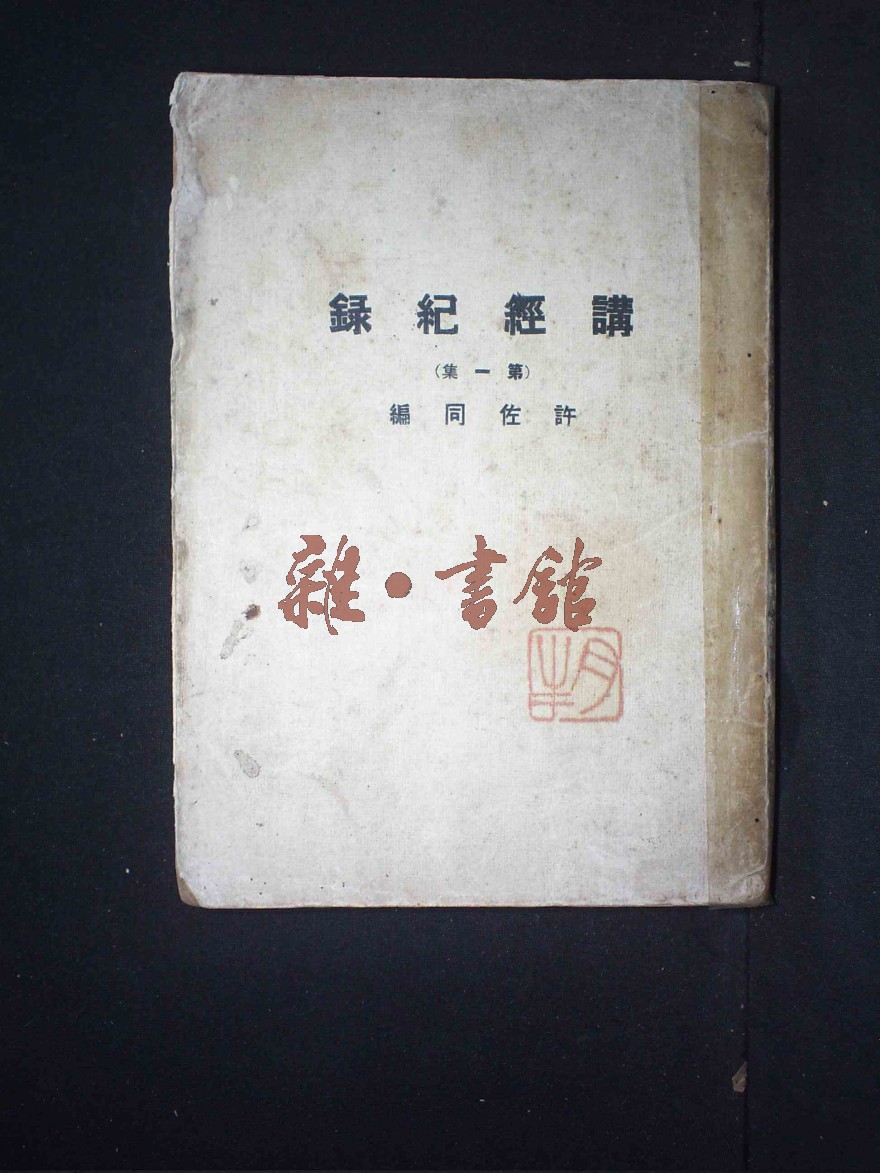 講經紀録
（第一集）
許佐同編
雜·書館